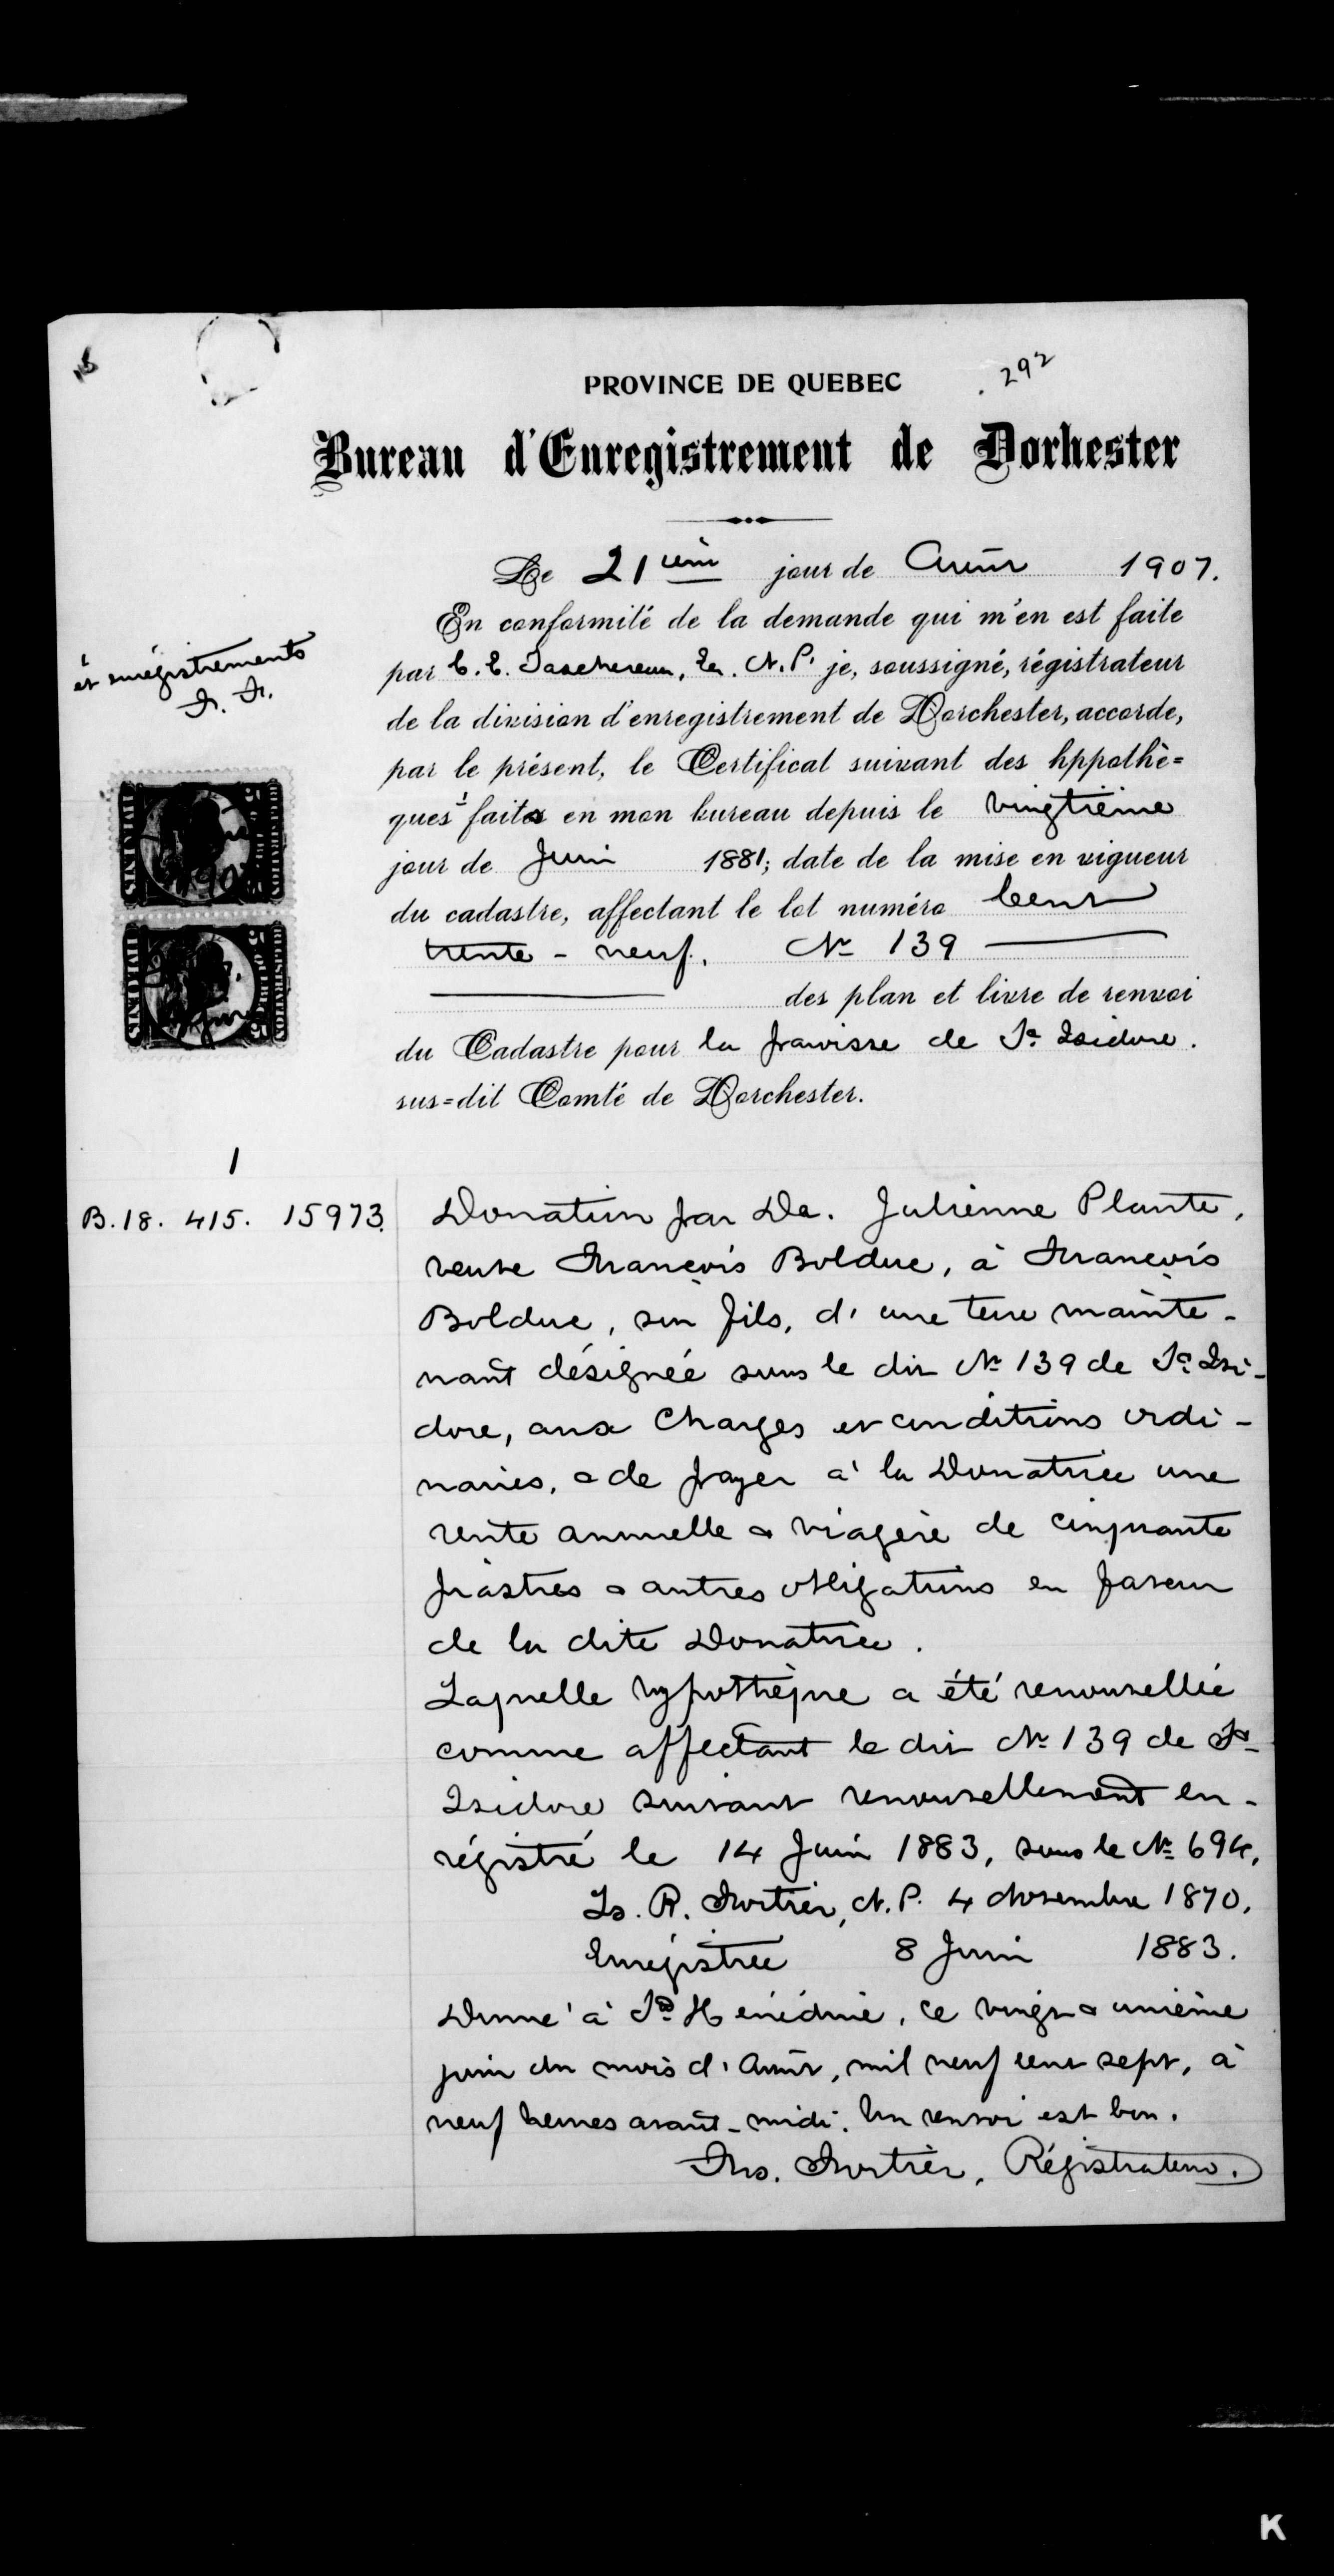 292
PROVINCE DE QUEBEC
Bureau d'Enregistrement de Dorhester
Le 21ième jour de Août 1907.
En conformité de la demande qui m'en est faite
par C. E. Taschereau, Er. N. P. je, soussigné, régistrateur
de la division d'enregistrement de Dorchester, accorde,
par le présent, le Certificat suivant des hppothè=
ques faits en mon bureau depuis le vingtième
jour de Juin 1881; date de la mise en vigueur
du cadastre, affectant le lot numéro Cent
trente-neuf. No 139
des plan et livre de renvoi
du Cadastre pour la paroisse de St Isidore.
sus=dit Comté de Dorchester.
et enrégistrements
F. F.
1
B. 18. 415. 15973.
Donation par De. Julienne Plante,
veuve François Bolduc, à François
Bolduc, son fils, d'une terre mainte-
nant désignée sous le dit No 139 de St Isi-
dore, aux Charges et conditions ordi-
naires, & de payer à la Donatrice une
rente annuelle & viagère de cinquante
piastres & autres obligations en faveur
de la dite Donatrice.
Laquelle hypothèque a été renouvellée
comme affectant le dit No 139 de St
Isidore suivant renouvellement en-
régistré le 14 Juin 1883, sous le No 694,
Ls. R. Fortier, N. P. 4 Novembre 1870.
Enrégistrée 8 Juin 1883.
Donné à Ste Hénédine, ce vingt & unième
jour du mois d'Août, mil neuf cent sept, à
neuf heures avant-midi. Un renvoi est bon.
Ths. Fortier, Régistrateur.
K